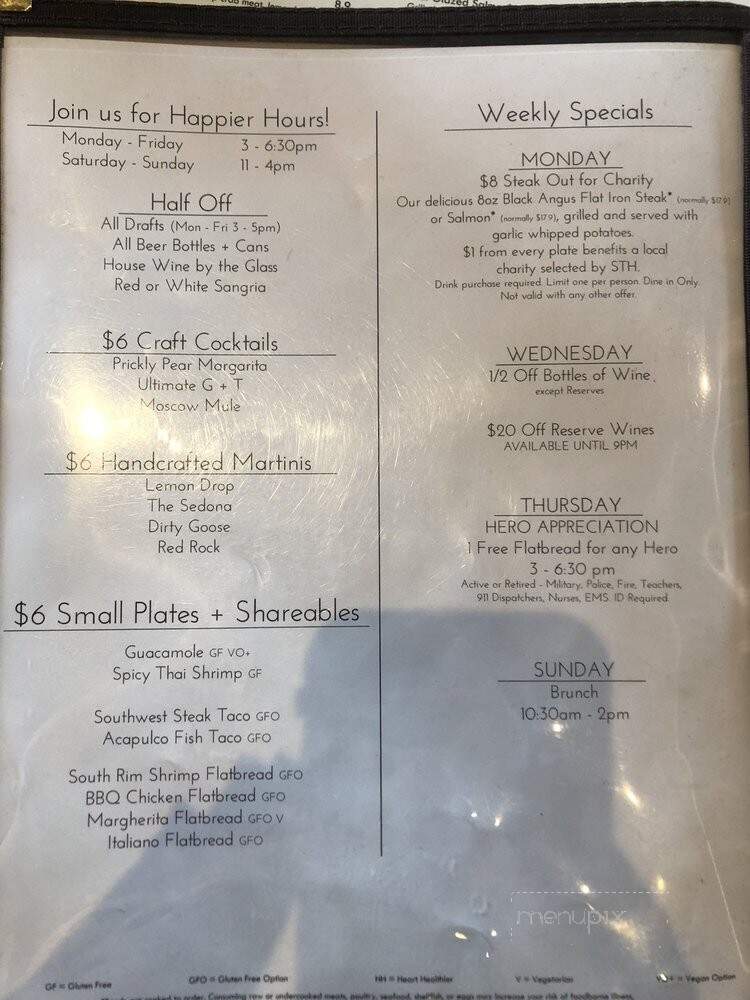 8.9
Join us for Happier Hours!
Monday - Friday 3 - 6:30pm
Saturday - Sunday 11 - 4pm
Half Off
All Drafts (Mon - Fri 3 - 5pm)
All Beer Bottles + Cans
House Wine by the Glass
Red or White Sangria
$6 Craft Cocktails
Prickly Pear Margarita
Ultimate G + T
Moscow Mule
$6 Handcrafted Martinis
Lemon Drop
The Sedona
Dirty Goose
Red Rock
$6 Small Plates + Shareables
Guacamole GF VO+
Spicy Thai Shrimp GF
Southwest Steak Taco GFO
Acapulco Fish Taco GFO
South Rim Shrimp Flatbread GFO
BBQ Chicken Flatbread GFO
Margherita Flatbread GFO V
Italiano Flatbread GFO
Weekly Specials
MONDAY
$8 Steak Out for Charity
Our delicious 8oz Black Angus Flat Iron Steak* (normally $17.9)
or Salmon* (normally $17.9), grilled and served with
garlic whipped potatoes.
$1 from every plate benefits a local
charity selected by STH.
Drink purchase required. Limit one per person. Dine in Only.
Not valid with any other offer.
WEDNESDAY
1/2 Off Bottles of Wine
except Reserves
$20 Off Reserve Wines
AVAILABLE UNTIL 9PM
THURSDAY
HERO APPRECIATION
1 Free Flatbread for any Hero
3 - 6:30 pm
Active or Retired - Military, Police, Fire, Teachers,
911 Dispatchers, Nurses, EMS. ID Required.
SUNDAY
Brunch
10:30am - 2pm
menupix
GF = Gluten Free GFO = Gluten Free Option HH = Heart Healthier V = Vegetarian VO+ = Vegan Option
cooked to order. Consuming raw or undercooked meats, poultry, seafood, shellfish, or eggs may increase your risk of foodborne illness.